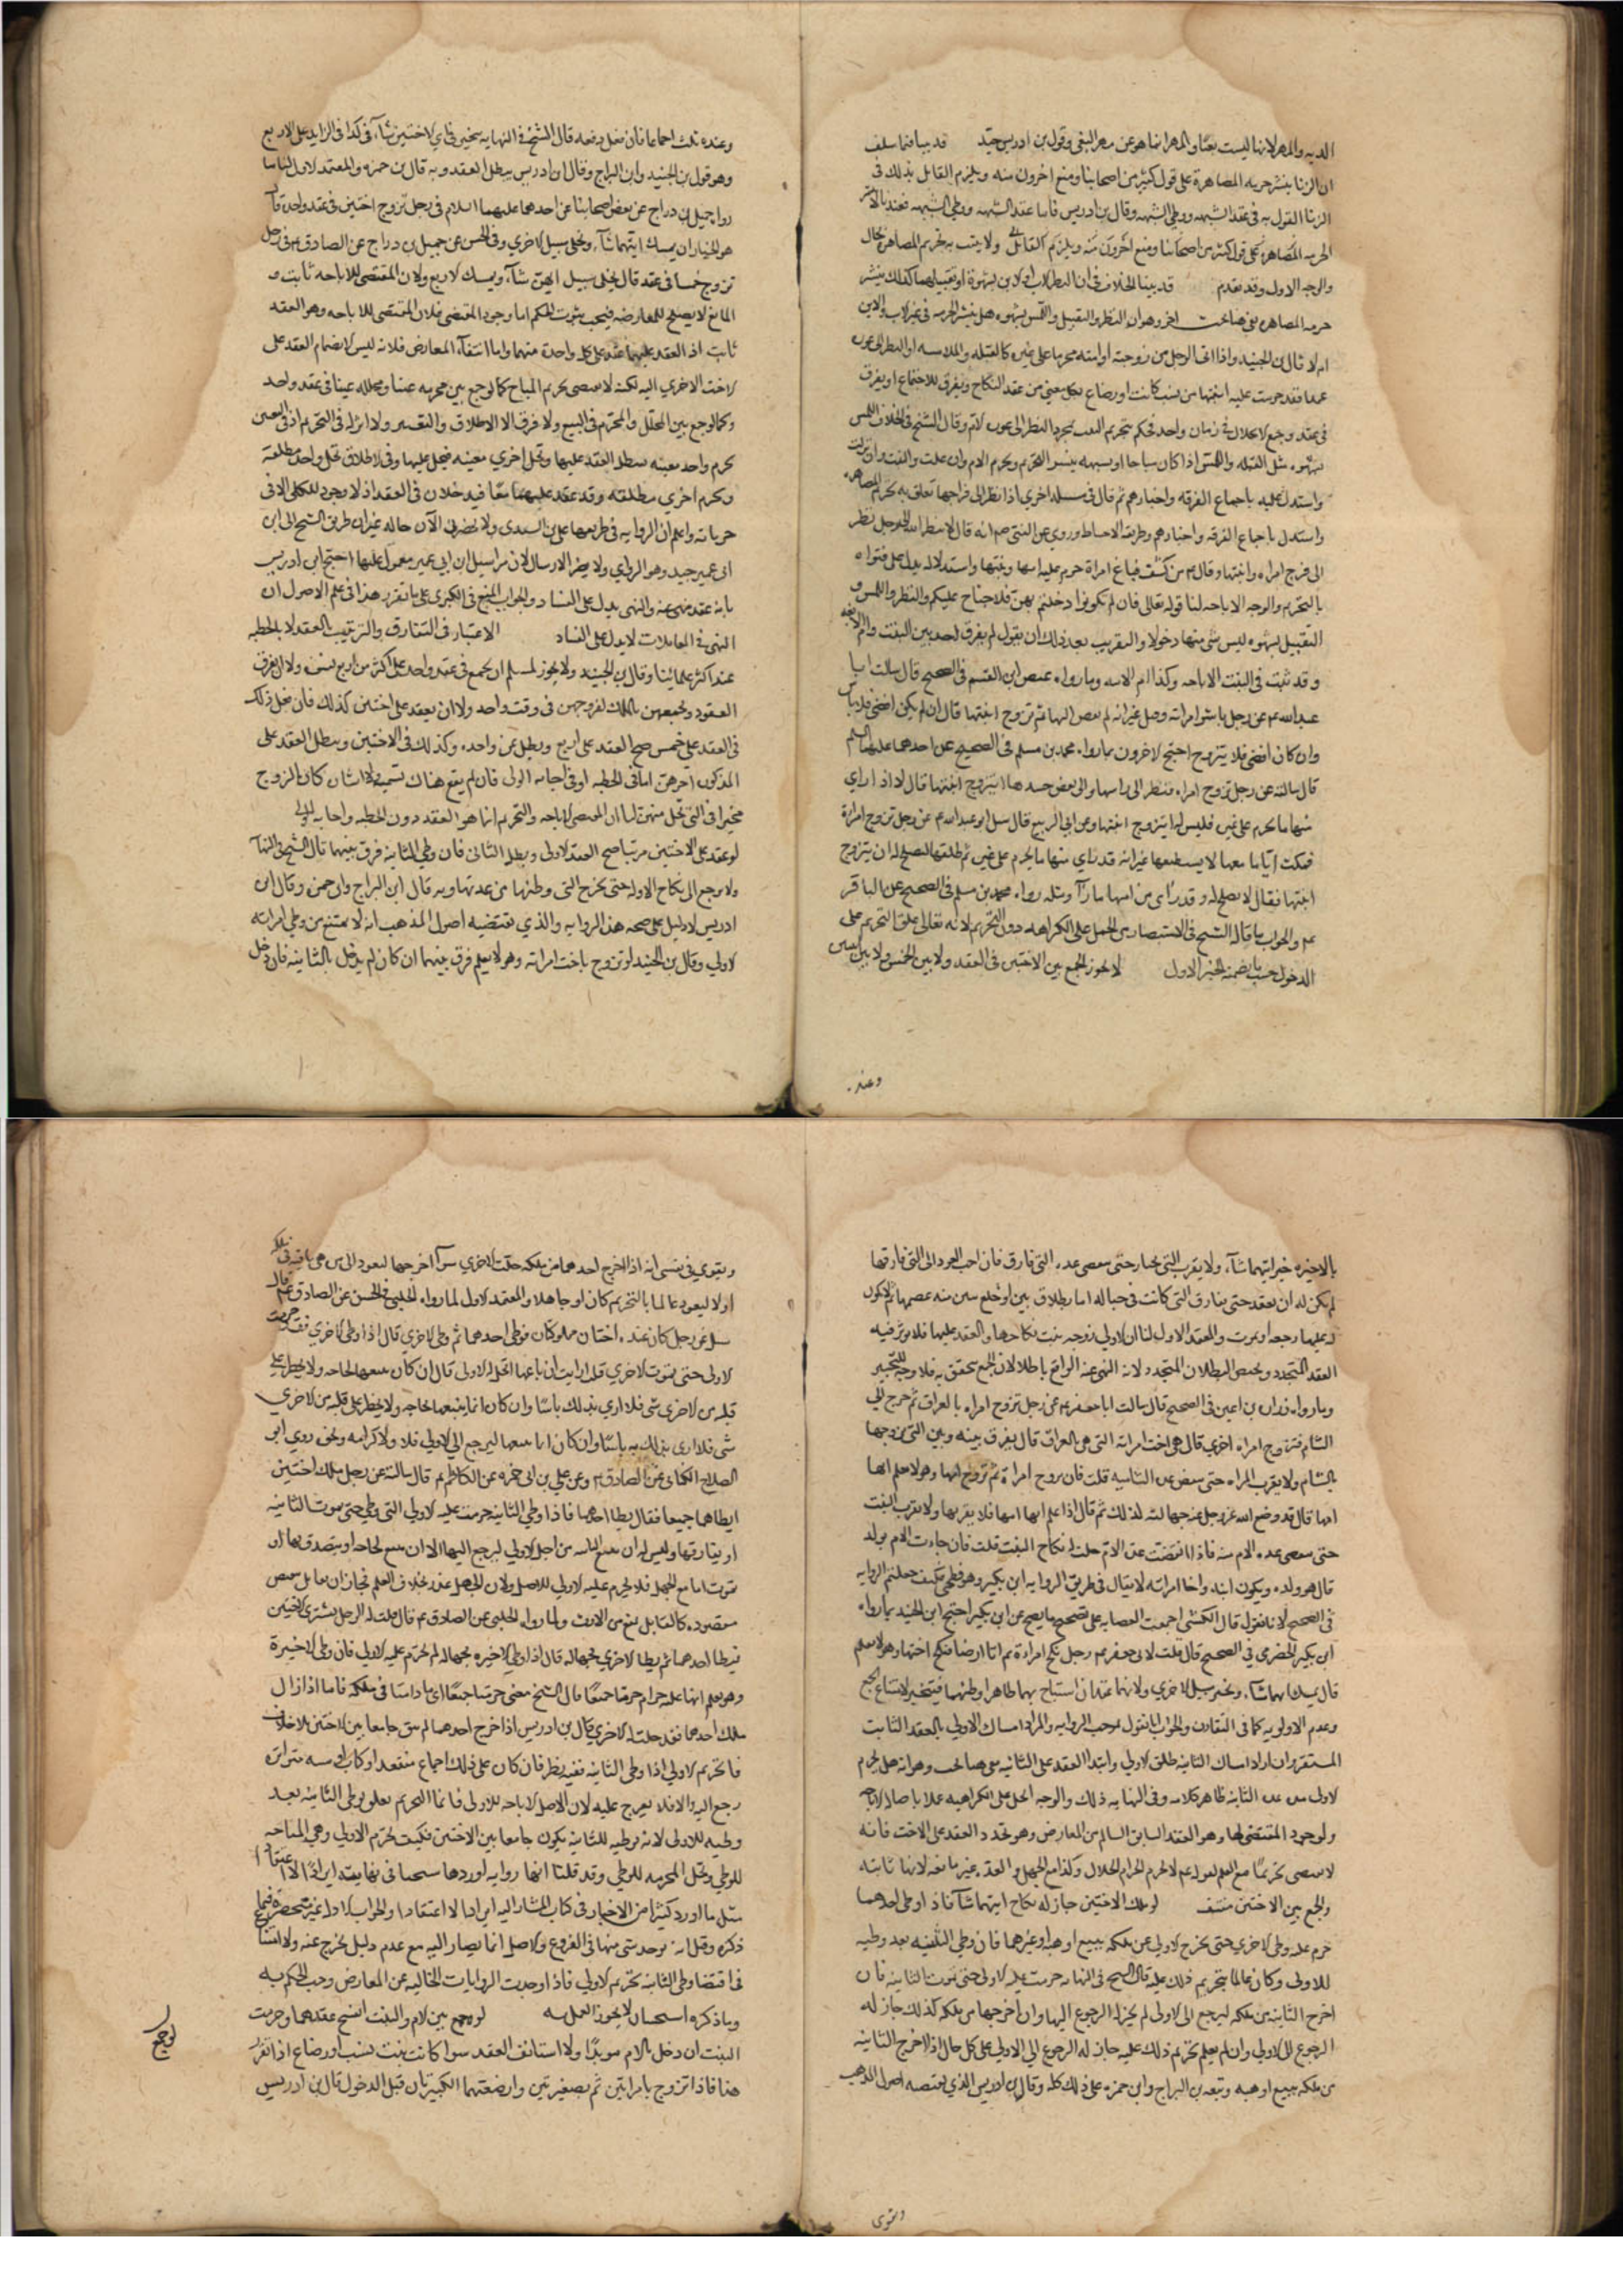 الديه والمهر لانها ليست بعضا والمهر انما هو عن مهر البغي وقول بن ادريس جيد قد بينا فيما سلف
ان الزنا ينشر حرمه المصاهرة على قول كثير من اصحابنا ومنع اخرون منه ويلزم القايل بذلك في
الزنا القول به في عقد الشبهه ووطي الشبهه وقال بن ادريس فاما عقد الشبهه ووطي الشبهه فعندنا لا ينشر
الحرمه
والوجه الاول وقد تقدم قد بينا الخلاف في ان النظر الاب او الابن بشهوة او تقبيلهما كذلك ينشر
حرمه المصاهره بقي هنا بحث اخر وهو ان النظر والتقبيل واللمس بشهوه هل ينشر الحرمه في غير الاب والابن
ام لا قال بن الجنيد واذا اتى الرجل من زوجته او امته محرما على غيره كالقبله والملامسه او النظر الى عوره
عمدا فقد حرمت عليه ابنتها من نسب كانت او رضاع
بشهوه مثل القبله واللمس اذا كان مباحا او بشبهه ينشر التحريم وتحرم الام وان علت والبنت وان نزلت
واستدل عليه باجماع الفرقه واخبارهم ثم قال في مسله اخري اذا نظر الى فرجها تعلق به تحريم المصاهره
واستدل باجماع الفرقه واخبارهم وطريقه الاحتياط وروي عن النبي ص انه قال لا ينظر الله الى رجل نظر
الى فرج امراه وابنتها وقال ع من كشف قناع امراة حرم عليه امها وبنتها واستدلاله يدل على فتواه
بالتحريم والوجه الاباحه لنا قوله تعالى فان لم تكونوا دخلتم بهن فلا جناح عليكم والنظر واللمس و
التقبيل بشهوه ليس شي منها دخولا والتقريب بعد ذلك ان يقول لم يفرق احد بين البنت والام
وقد ثبت في البنت الاباحه وكذا الام وما رواه عيص ابن القسم في الصحيح قال سالت ابا
عبد الله ع عن رجل باشر امراته وقبل غير انه لم يفض اليها ثم تزوج ابنتها قال ان لم يكن افضى فلا باس
وان كان افضى فلا يتزوج احتج الاخرون بما رواه محمد بن مسلم في الصحيح عن احدهما عليهما السلم
قال سالته عن رجل تزوج امراه فنظر الى راسها والى بعض جسدها ايتزوج ابنتها قال لا اذا راي
منها ما يحرم على غيره فليس له ان يتزوج ابنتها وعن ابي الربيع قال سئل ابو عبد الله ع عن رجل تزوج امراة
فمكث اياما معها لا يستطيعها غير انه قد راي منها ما يحرم على غيره ثم طلقها ايصلح له ان يتزوج
ابنتها فقال لا يصلح له وقد راى من امها ما راى ومثله رواه محمد بن مسلم في الصحيح عن الباقر
ع والجواب ما قاله الشيخ في الاستبصار من الحمل على الكراهه دون التحريم لانه تعالى علق التحريم على
الدخول حسب ما تضمنه الخبر الاول لا يجوز الجمع بين الاختين في العقد ولا بين
وعنه
وعنده ثلث اجماعا فان فعل دفعه قال الشيخ في النهايه يتخير في اي الاختين شاء وكذا في الزايد على الاربع
وهو قول بن الجنيد وابن البراج وقال ابن ادريس يبطل العقد وبه قال بن حمزه والمعتمد الاول لنا ما
رواه جميل بن دراج عن بعض اصحابنا عن احدهما عليهما السلام في رجل تزوج اختين في عقد واحد قال
هو بالخيار ان يمسك ايتهما شاء ويخلي سبيل الاخري وفي الحسن عن جميل بن دراج عن الصادق ع في رجل
تزوج خمسا في عقد قال يخلي سبيل ايهن شاء ويمسك الاربع ولان المقتضي للاباحه ثابت و
المانع لا يصلح للمعارضه فيجب ثبوت الحكم اما وجود المقتضي فلان المقتضي للاباحه وهو العقد
ثابت اذ العقد عليهما عقد على كل واحدة منهما واما انتفاء المعارض فلانه ليس الا انضمام العقد على
الاخت الاخري اليه لكنه لا يقتضي تحريم المباح كما لو جمع بين محرمه عينا ومحلله عينا في عقد واحد
وكما لو جمع بين المحلل والمحرم في البيع ولا فرق الا الاطلاق والتعيين ولا اثر له في التحريم اذ في المعين
تحرم واحد معينه يبطل العقد عليها وتحل اخري معينه فيحل عليها وفي الاطلاق تحل واحد مطلقه
وتحرم اخري مطلقه وقد عقد عليهما معا فيدخلان في العقد اذ لا وجود للكلي الا في
جزياته واعلم ان الروايه في طريقها علي بن السندي ولا يحضرني الآن حاله غير ان طريق الشيخ الى ابن
ابي عمير جيد وهو الراوي ولا يضر الارسال لان مراسيل ابن ابي عمير معمول عليها احتج ابن ادريس
بانه عقد منهي عنه والنهي يدل على الفساد والجواب المنع في الكبري على ما تقرر هذا في علم الاصول ان
النهي في المعاملات لا يدل على الفساد الاعتبار في التفارق والترتيب بالعقد لا بالخطبه
عند اكثر علمائنا وقال بن الجنيد ولا يجوز لمسلم ان يجمع في عقد واحد على اكثر من اربع نسوه ولا ان يفرق
العقود ويجمعهن بالملك لفروجهن في وقت واحد ولا ان يعقد على اختين كذلك فان فعل ذلك
في العقد على خمس صح العقد على اربع ويبطل عن واحده وكذلك في الاختين ويبطل العقد على
المذكوره آخرهن اما في الخطبه او في اجابه الولي فان لم يقع هناك تسميه الاثنتان كان الزوج
مخيرا في التي تحل منهن لنا ان المقتضي للاباحه والتحريم انما هو العقد دون الخطبه واجابه الولي
لو عقد على الاختين مرتبا صح العقد الاولى وبطل الثاني فان وطي الثانيه فرق بينهما قال الشيخ في النهايه
ولا يرجع الى نكاح الاوله حتى تخرج التي وطئها من عدتها وبه قال ابن البراج وابن حمزه وقال ابن
ادريس لا دليل على صحه هذه الروايه والذي تقتضيه اصول المذهب انه لا يمتنع من وطي امراته
الاولي وقال بن الجنيد لو تزوج باخت امراته وهو لا يعلم فرق بينهما ان كان لم يدخل بالثانيه فان دخل
بالاخيره خير ايتهما شاء ولا يقرب التي يختار حتى تنقضي عده التي فارق فان احب العود الى التي فارقها
لم يكن له ان يعقد حتى يفارق التي كانت في حباله اما بطلاق بين او خلع
له عليها رجعه او بموت والمعتمد الاول لنا ان الاولي زوجه ثبت نكاحها والعقد عليها فلا يوثر فيه
العقد المتجدد ويختص البطلان المتجدد لانه المنهي عنه الواقع باطلا لان الجمع يتحقق به فلا وجه للتخيير
وما رواه زراره بن اعين في الصحيح قال سالت ابا جعفر ع عن رجل تزوج امراه بالعراق ثم خرج الي
الشام فتزوج امراه اخري قال هي اخت امراته التي هي بالعراق قال يفرق بينه وبين التي تزوجها
بالشام ولا يقرب المراه حتى تنقضي عده الشاميه قلت فان تزوج امراة ثم تزوج امها وهو لا يعلم انها
امها قال قد وضع الله عز وجل عنه جهالته لذلك ثم قال اذا علم انها امها فلا يقربها ولا يقرب البنت
حتى تنقضي عده الام منه فاذا انقضت عده الام حلت له نكاح البنت قلت فان جاءت الام بولد
قال هو ولده ويكون ابنه واخا امراته لا يقال في طريق الروايه ابن بكير وهو فطحي فكيف جعلتم الروايه
في الصحيح لانا نقول قال الكشي اجمعت العصابه على تصحيح ما يصح عن ابن بكير احتج ابن الجنيد بما رواه
ابي بكير الحضرمي في الصحيح قال قلت لابي جعفر ع رجل نكح امراءة ثم اتا ارضا فنكح اختها وهو لا يعلم
قال يمسك ايهما شاء ويخلي سبيل الاخري
وعدم الاولويه كما في التقارن والجواب انا نقول بموجب الروايه والمراد امساك الاولي بالعقد الثابت
المستقر وان اراد امساك الثانيه طلق الاولي وابتدا العقد على الثانيه بقي هنا بحث وهو انه هل يحرم
الاولى من عده الثانيه ظاهر كلامه وفي النهايه ذلك والوجه الحمل على الكراهيه عملا باصاله الاباحه
ولوجود المقتضي لها وهو العقد السابق السالم من المعارض وهو تجدد العقد على الاخت فانه
لا يقتضي تحريما مع العلم لقوله ع لا يحرم الحرام الحلال وكذا مع الجهل والعده غير مانعه لانها ثابته
والجمع بين الاختين منتف لو ملك الاختين جاز له نكاح ايتهما شاء فاذا وطي احدهما
حرم عليه وطي الاخري حتى تخرج الاولي عن ملكه ببيع او هبه او غيرهما فان وطي الثانيه بعد وطيه
للاولى وكان عالما بتحريم ذلك عليه قال الشيخ في النهايه حرمت عليه الاولى حتى تموت الثانيه فان
اخرج الثانيه من ملكه ليرجع الى الاولى لم يجز له الرجوع اليها وان اخرجها من ملكه كذلك جاز له
الرجوع الي الاولي وان لم يعلم تحريم ذلك عليه جاز له الرجوع الي الاولي على كل حال اذا اخرج الثانيه
من ملكه ببيع او هبه وتبعه بن البراج وابن حمزه على ذلك كله وقال بن ادريس الذي يقتضيه اصول المذهب
ويقوي
ويقوي في نفسي انه اذا اخرج احدهما من ملكه حلت الاخري سواء اخرجها ليعود الى من هي باقيه في ملكه
او لا ليعود عالما بالتحريم كان او جاهلا والمعتمد الاول لما رواه الحلبي في الحسن عن الصادق ع قال
سئل عن رجل كان عنده اختان مملوكتان فوطي احدهما ثم وطي الاخري قال اذا وطي الاخري فقد حرمت
الاولى حتى تموت الاخري قلت ارايت ان باعها اتحل له الاولى قال ان كان يبيعها لحاجه ولا يخطر على
قلبه من الاخرى شي فلا اري بذلك باسا وان كان انما يبيعها لحاجه ولا يخطر على قلبه من الاخري
شي فلا اري بذلك به باسا وان كان انما يبيعها ليرجع الي الاولي فلا ولا كرامه ونحوه روي ابو
الصلاح الكناني عن الصادق ع وعن علي بن ابي حمزه عن الكاظم ع قال سالته عن رجل ملك اختين
ايطاهما جميعا فقال يطا احدهما فاذا وطي الثانيه حرمت عليه الاولي التي وطي حتى تموت الثانيه
او يفارقها وليس له ان يبيع الثانيه من اجل الاولي ليرجع اليها الا ان يبيع لحاجه او يتصدق بها او
تموت اما مع الجهل فلا يحرم عليه الاولي للاصل ولان الجهل عذر بخلاف العلم فجاز ان يعامل بنقيض
مقصوده كالقاتل يمنع من الارث ولما رواه الحلبي عن الصادق ع قال قلت له الرجل يشتري الاختين
فيطا احدهما ثم يطا الاخري بجهاله قال اذا وطي الاخيره بجهاله لم تحرم عليه الاولي فان وطي الاخيرة
وهو يعلم انها عليه حرام حرمتا جميعا قال الشيخ معنى حرمتا جميعا اي ما دامتا في ملكه فاما اذا زال
ملك احدهما فقد حلت له الاخري قال بن ادريس اذا خرج احدهما لم يبق جامعا بين الاختين بلا خلاف
فاما تحريم الاولي اذا وطي الثانيه ففيه نظر فان كان على ذلك اجماع منعقد او كتاب او سنه متواتره
رجع اليه والا فلا يعرج عليه لان الاصل الاباحه للاولى فانما التحريم تعلق بوطي الثانيه بعد
وطيه للاولى لانه بوطيه للثانيه يكون جامعا بين الاختين فكيف تحرم الاولي وهي المباحه
للوطي وتحل المحرمه للوطي وقد قلنا انها روايه اوردها شيخنا في نهايته ايرادا لا اعتقادا
مثل ما اورد كثيرا من الاخبار في كتابه المشار اليه ايرادا لا اعتقادا والجواب
ذكره وقل ان يوجد شي منها في الفروع والاصل انما يصار اليه مع عدم دليل يخرج عنه ولا
في اقتضا وطي الثانيه تحريم الاولي فاذا وجدت الروايات الخاليه عن المعارض وجب الحكم به
وما ذكره استحسان لا يجوز العمل به لو جمع بين الام والبنت انفسخ عقدهما وحرمت
البنت ان دخل بالام موبدا والا استانف العقد سوا كانت بنت نسب او رضاع اذا تقرر
هذا فاذا تزوج بامراتين ثم بصغيرتين وارضعتهما الكبيرتان قبل الدخول قال بن ادريس
لو جمع